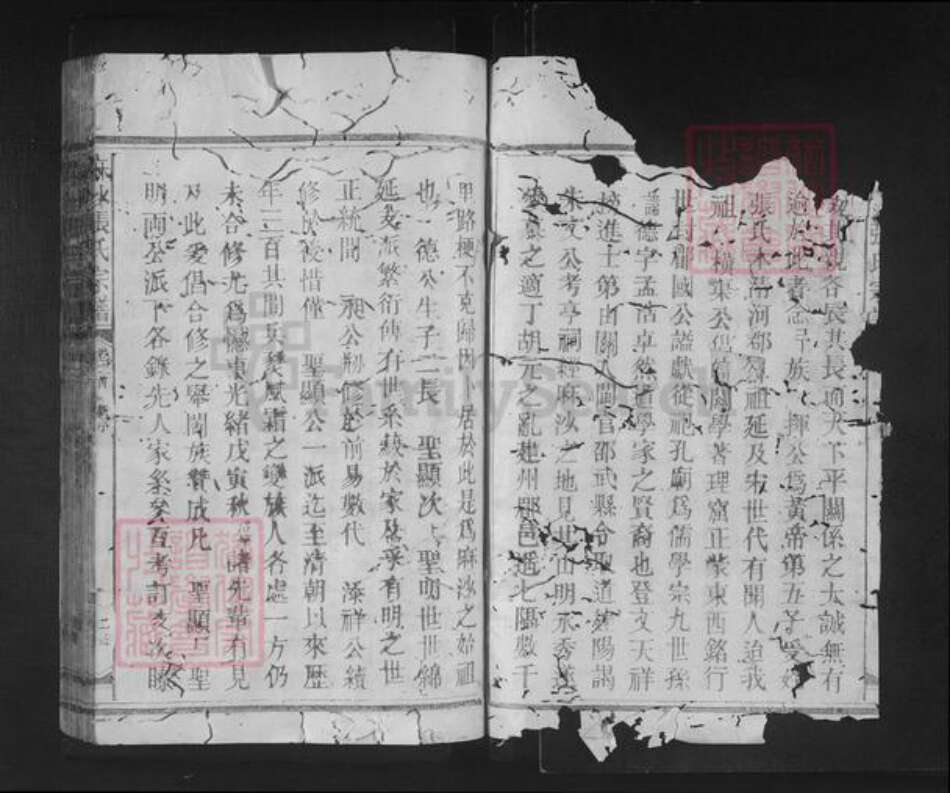 親各長其長而天下平關係之大誠無有
逾於此者吾族 揮公爲黃帝第五子
張氏本清河郡 祖延及宋世代有聞人迨我
祖 橫渠公倡 關學著理窟正蒙東西銘行
世 封郿國公謚獻從祀孔廟爲儒學宗九世孫
諱德字孟 卓然道學家之賢裔也登文天祥
榜進士第由關入閩官邵武縣令取道建陽謁
朱文公考亭祠經麻沙之地見其山明水秀遂
之適丁胡元之亂建州郡邑遥七隅數千
里路梗不克歸因 居於此是爲麻沙之始祖
也 德公生子二長 聖顯次 聖明世世綿
延支派繁衍傳在世系載於家及乎有明之世
正統間 昶公刱修於前易數代 添祥公續
修於後惜僅 聖顯公一派迄至清朝以來歷
年二百其間頁發風霜之變族人各處一方仍
未合修尤爲憾事光緒戊寅秋 諸先輩有見
及此爰倡合修之舉闔族贊成凡 聖顯 聖
明兩公派下各鈔先人家系矣互考訂支次
張氏宗譜
FamilySearch